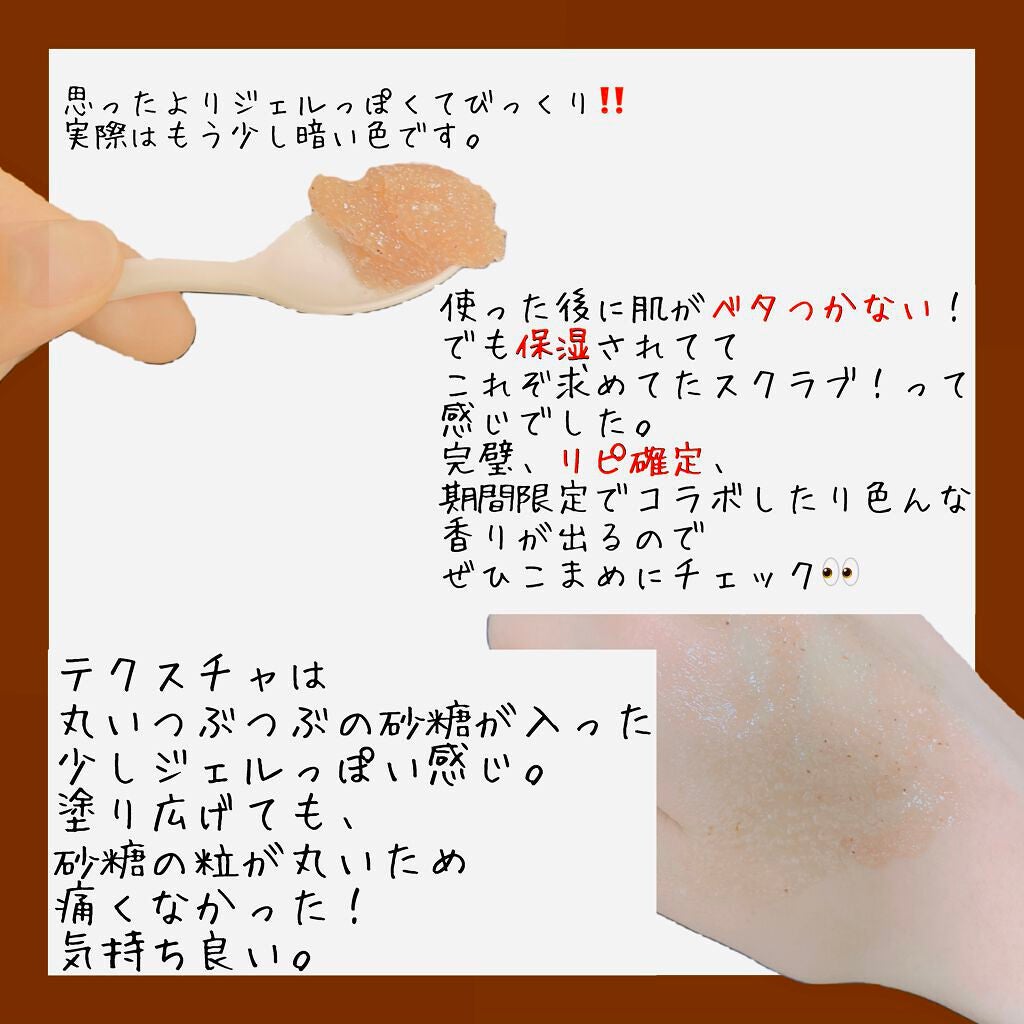 思ったよりジェルっぽくてびっくり‼️
実際はもう少し暗い色です。
使った後に肌がベタつかない！
でも保湿されてて
これぞ求めてたスクラブ！って
感じでした。
完璧、リピ確定、
期間限定でコラボしたり色んな
香りが出るので
ぜひこまめにチェック👀
テクスチャは
丸いつぶつぶの砂糖が入った
少しジェルっぽい感じ。
塗り広げても、
砂糖の粒が丸いため
痛くなかった！
気持ち良い。